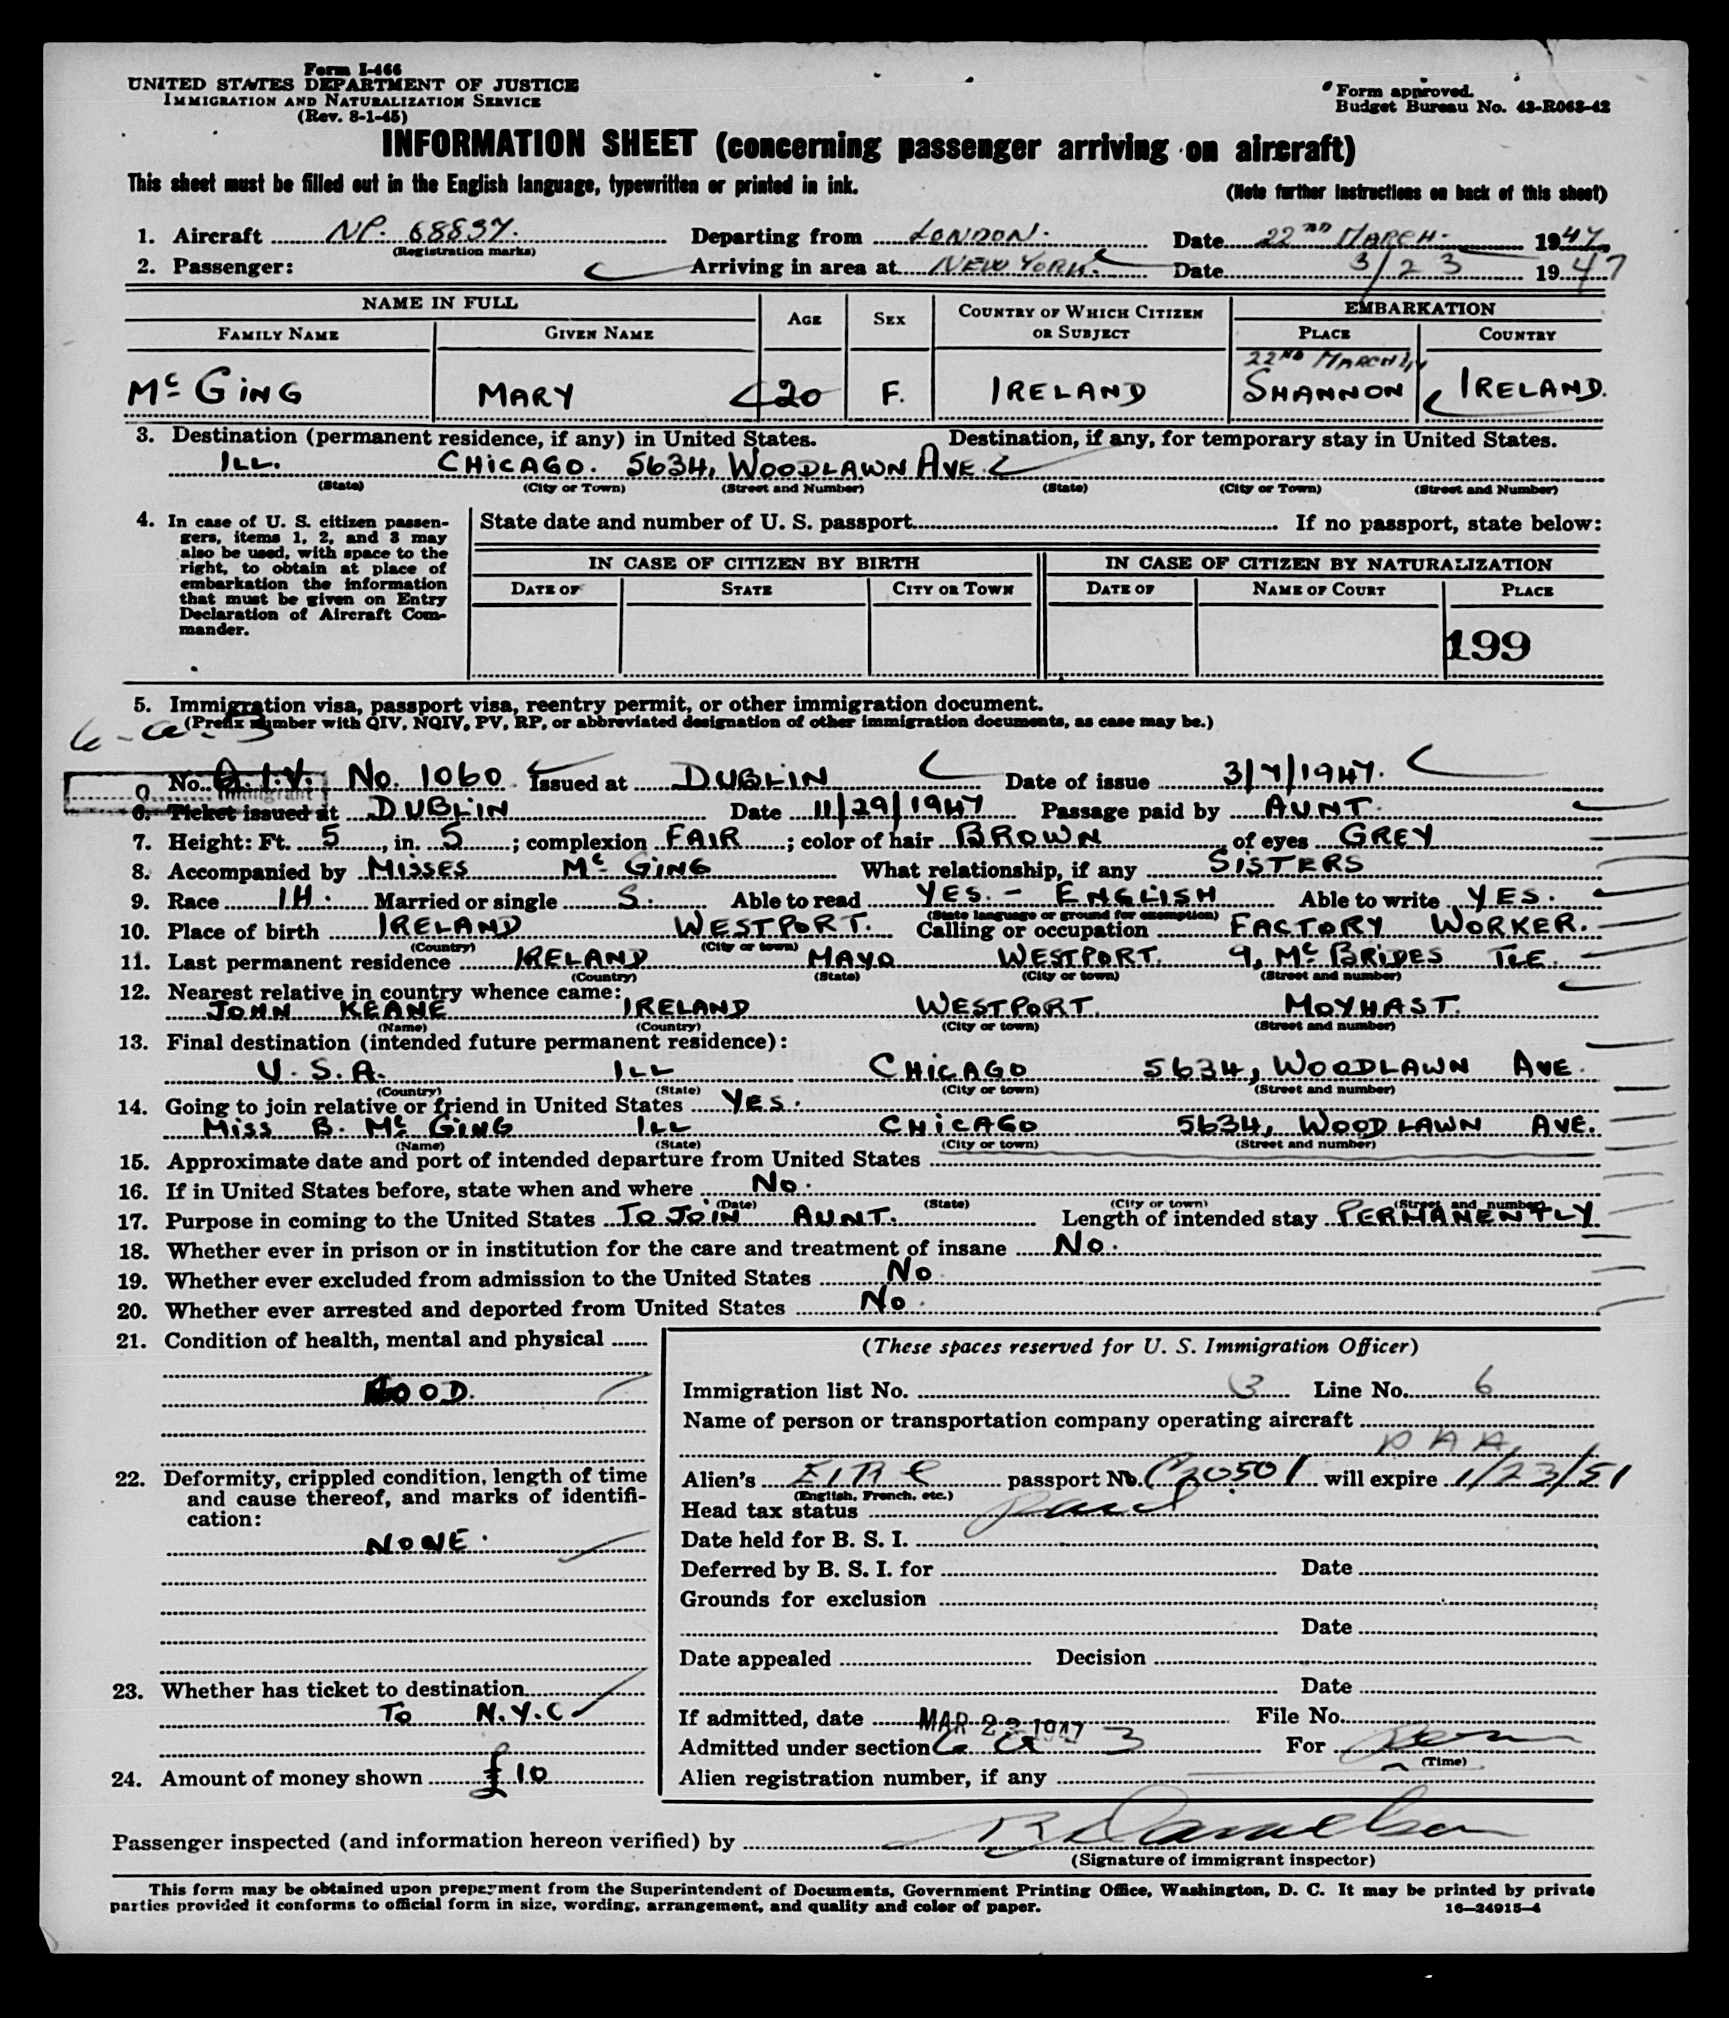 Form I-466
UNITED STATES DEPARTMENT OF JUSTICE
IMMIGRATION AND NATURALIZATION SERVICE
(Rev. 8-1-45)
Form approved.
Budget Bureau No. 43-R068-42
INFORMATION SHEET (concerning passenger arriving on aircraft)
This sheet must be filled out in the English language, typewritten or printed in ink.
(Note further instructions on back of this sheet)
1. Aircraft NP. 68837. Departing from LONDON. Date 22ND MARCH 1947
(Registration marks)
2. Passenger: Arriving in area at NEW YORK. Date 3/23 1947
NAME IN FULL AGE SEX COUNTRY OF WHICH CITIZEN OR SUBJECT EMBARKATION
FAMILY NAME GIVEN NAME PLACE COUNTRY
22ND MARCH
Mc GING MARY 20 F. IRELAND SHANNON IRELAND.
3. Destination (permanent residence, if any) in United States. Destination, if any, for temporary stay in United States.
ILL. CHICAGO. 5634, WOODLAWN AVE.
(State) (City or Town) (Street and Number) (State) (City or Town) (Street and Number)
4. In case of U. S. citizen passengers, items 1, 2, and 3 may also be used, with space to the right, to obtain at place of embarkation the information that must be given on Entry Declaration of Aircraft Commander.
State date and number of U. S. passport If no passport, state below:
IN CASE OF CITIZEN BY BIRTH IN CASE OF CITIZEN BY NATURALIZATION
DATE OF STATE CITY OR TOWN DATE OF NAME OF COURT PLACE
199
5. Immigration visa, passport visa, reentry permit, or other immigration document.
(Prefix number with QIV, NQIV, PV, RP, or abbreviated designation of other immigration documents, as case may be.)
No. Q.I.V. No. 1060 Issued at DUBLIN Date of issue 3/7/1947.
6. Ticket issued at DUBLIN Date 11/29/1947 Passage paid by AUNT.
7. Height: Ft. 5, in. 5; complexion FAIR; color of hair BROWN of eyes GREY
8. Accompanied by MISSES Mc GING What relationship, if any SISTERS
9. Race IH. Married or single S. Able to read YES. - ENGLISH Able to write YES.
(State language or ground for exemption)
10. Place of birth IRELAND WESTPORT. Calling or occupation FACTORY WORKER.
(Country) (City or town)
11. Last permanent residence IRELAND MAYO WESTPORT. 9, Mc BRIDES TCE.
(Country) (State) (City or town) (Street and number)
12. Nearest relative in country whence came:
JOHN KEANE IRELAND WESTPORT. MOYHAST.
(Name) (Country) (City or town) (Street and number)
13. Final destination (intended future permanent residence):
U.S.A. ILL CHICAGO 5634, WOODLAWN AVE.
(Country) (State) (City or town) (Street and number)
14. Going to join relative or friend in United States YES.
MISS B. Mc GING ILL CHICAGO 5634, WOODLAWN AVE.
(Name) (State) (City or town) (Street and number)
15. Approximate date and port of intended departure from United States
16. If in United States before, state when and where NO.
(Date) (State) (City or town) (Street and number)
17. Purpose in coming to the United States TO JOIN AUNT. Length of intended stay PERMANENTLY
18. Whether ever in prison or in institution for the care and treatment of insane NO.
19. Whether ever excluded from admission to the United States NO
20. Whether ever arrested and deported from United States NO.
21. Condition of health, mental and physical
GOOD.
22. Deformity, crippled condition, length of time and cause thereof, and marks of identification:
NONE.
23. Whether has ticket to destination
TO N.Y.C
24. Amount of money shown £10
(These spaces reserved for U. S. Immigration Officer)
Immigration list No. 3 Line No. 6
Name of person or transportation company operating aircraft
PAA
Alien's EIRE passport No. C30501 will expire 1/23/51
(English, French, etc.)
Head tax status paid
Date held for B. S. I.
Deferred by B. S. I. for Date
Grounds for exclusion
Date
Date appealed Decision
Date
If admitted, date MAR 23 1947 File No.
Admitted under section 6 a 3 For Perm
(Time)
Alien registration number, if any
Passenger inspected (and information hereon verified) by
(Signature of immigrant inspector)
This form may be obtained upon prepayment from the Superintendent of Documents, Government Printing Office, Washington, D. C. It may be printed by private
parties provided it conforms to official form in size, wording, arrangement, and quality and color of paper.
16—24915-4